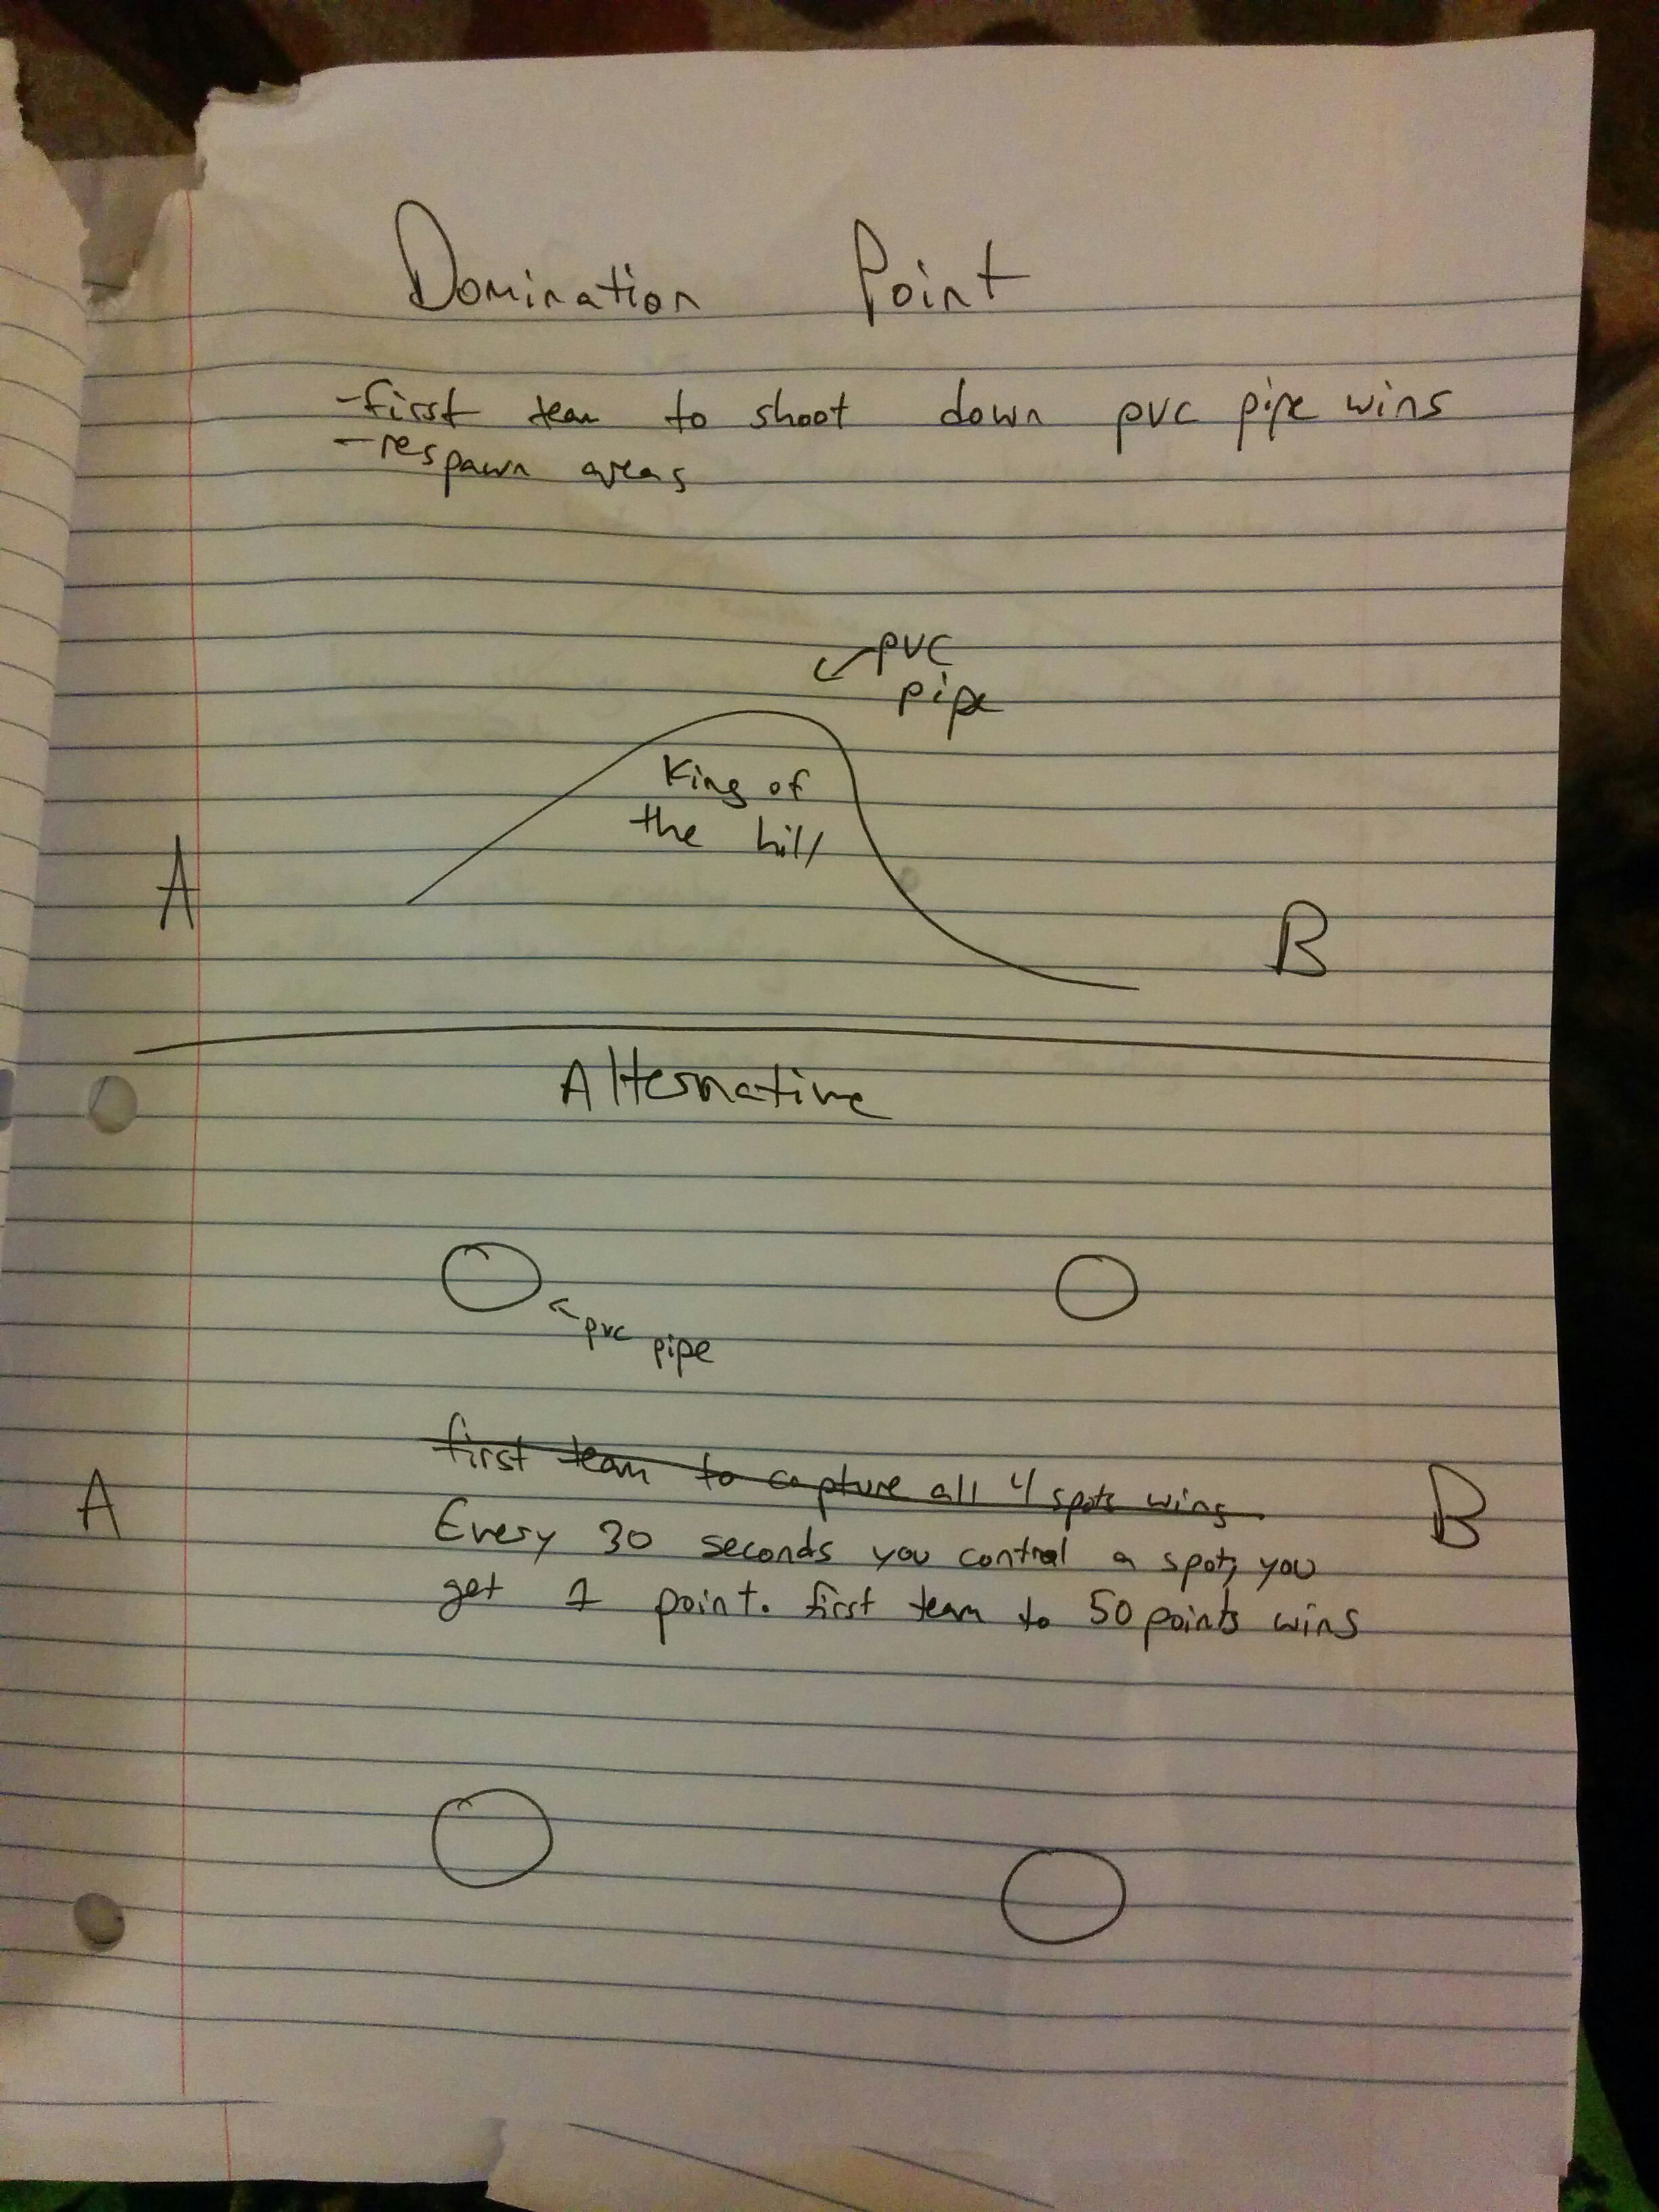 Domination Point
-first team to shoot down pvc pipe wins
-respawn areas
pvc
pipe
King of
the hill
A
B
Alternative
pvc pipe
first team to capture all 4 spots wins
A
B
Every 30 seconds you control a spot, you
get 1 point. first team to 50 points wins